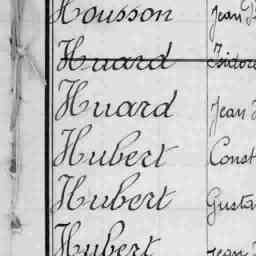 Housson Jean
Huard Isidore
Huard Jean
Hubert Const
Hubert Gusta
Hubert Jean